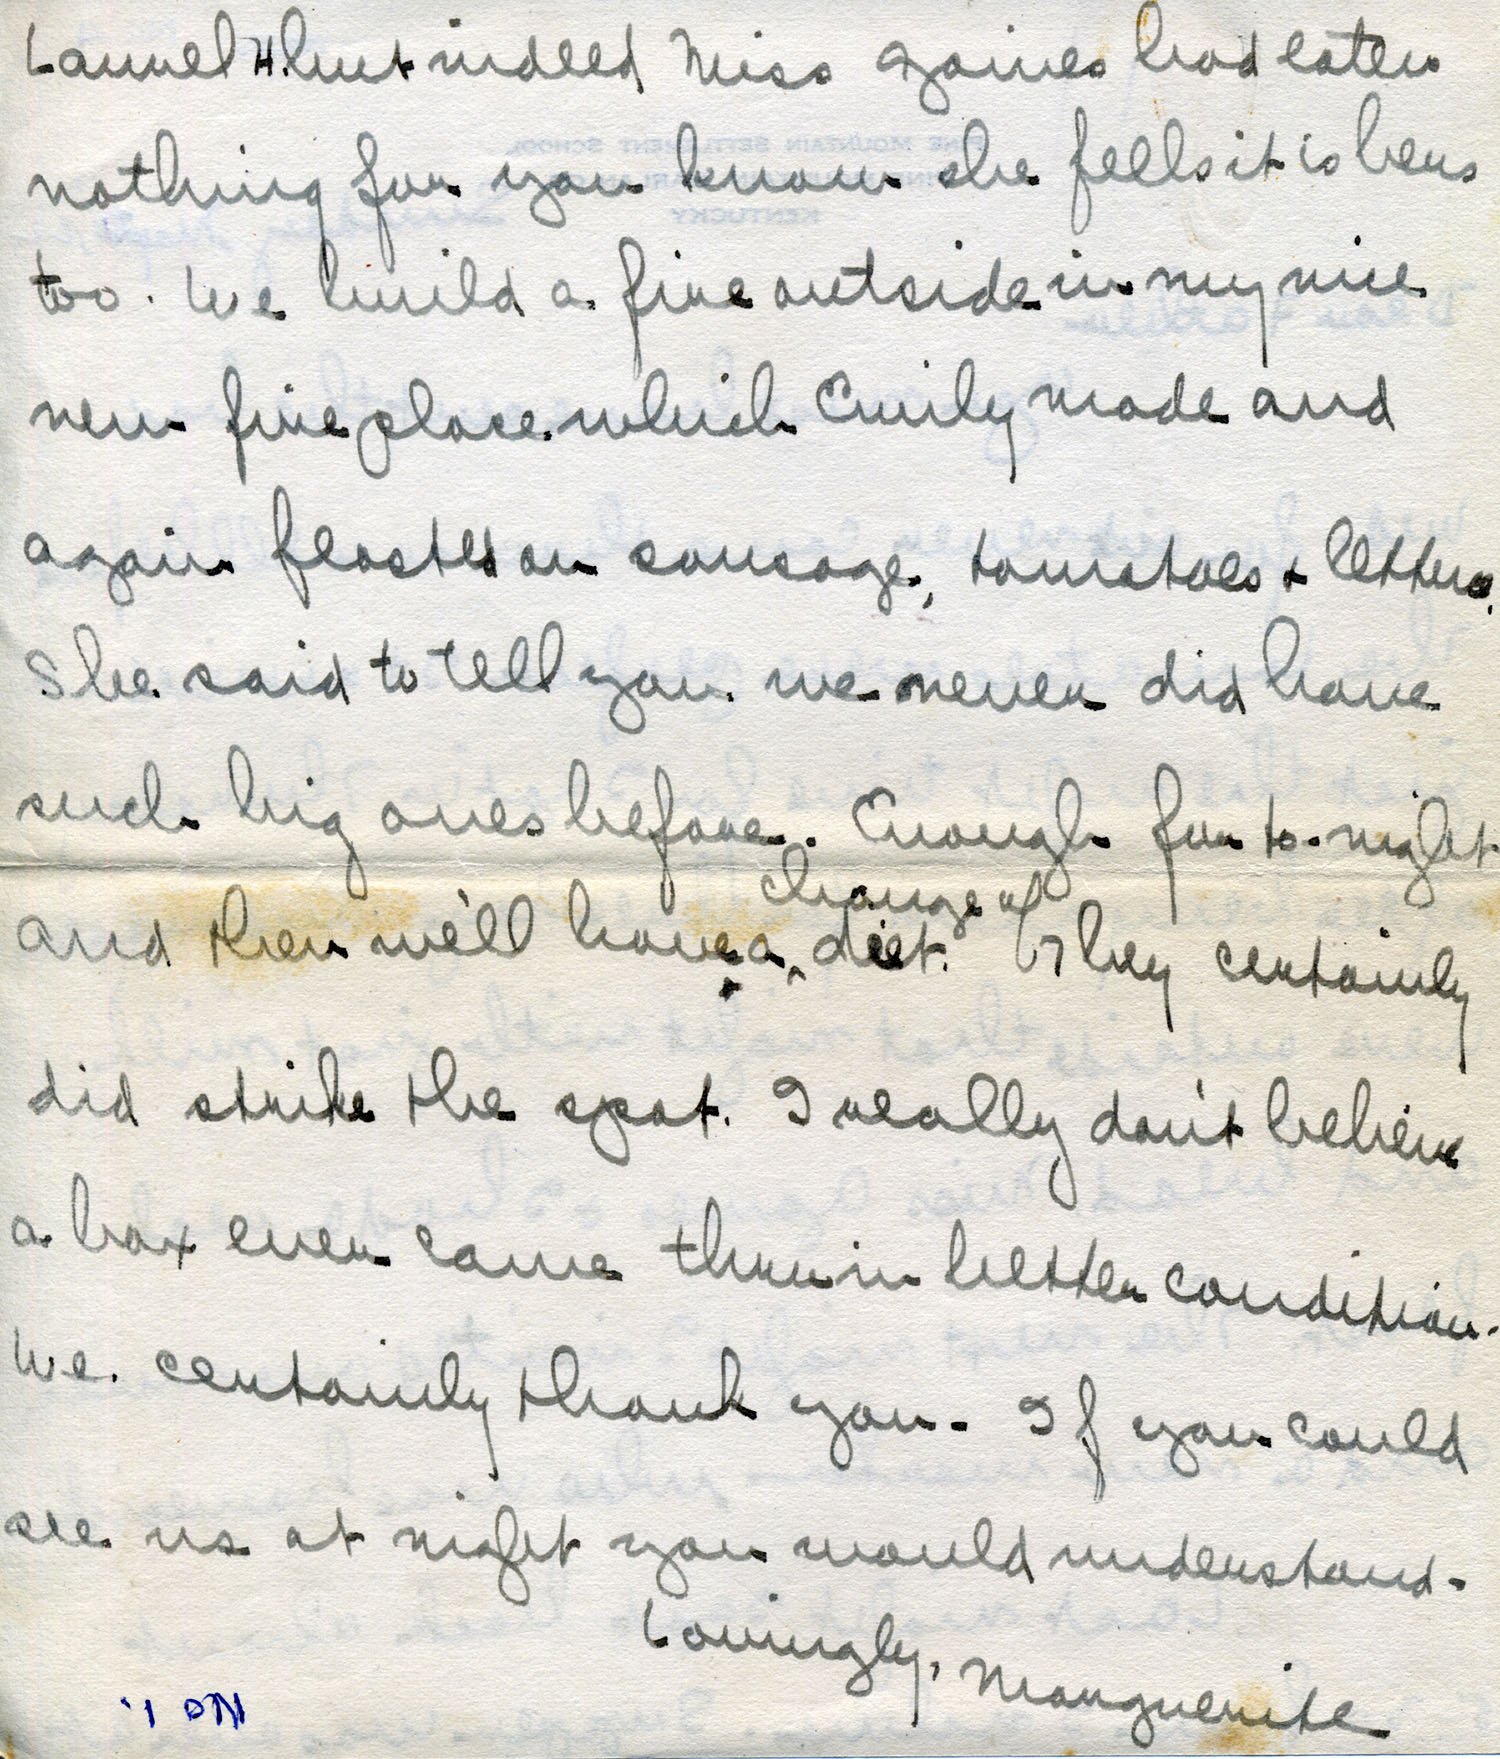 Laurel H. but indeed Miss Gaines had eaten
nothing for you know she fells it is hers
too. We build a fire outside in my nice
new fireplace which Emily made and
again feasted on sausage, tomatoes + lettuce.
She said to tell you we never did have
such big ones before. Enough for to-night
and then we'll have a change of diet. They certainly
did strike the spot. I really don't believe
a box ever came thru in better condition.
We certainly thank you. If you could
see us at night you would understand.
Lovingly, Marguerite
No 1.
PINE MOUNTAIN SETTLEMENT SCHOOL
KENTUCKY